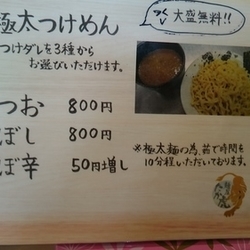 極太つけめん
つけダレを3種から
お選びいただけます。
つお 800円
ぼし 800円
ぼ辛 50円増し
大盛無料!!
※極太麺の為、茹で時間を
10分程いただいております。